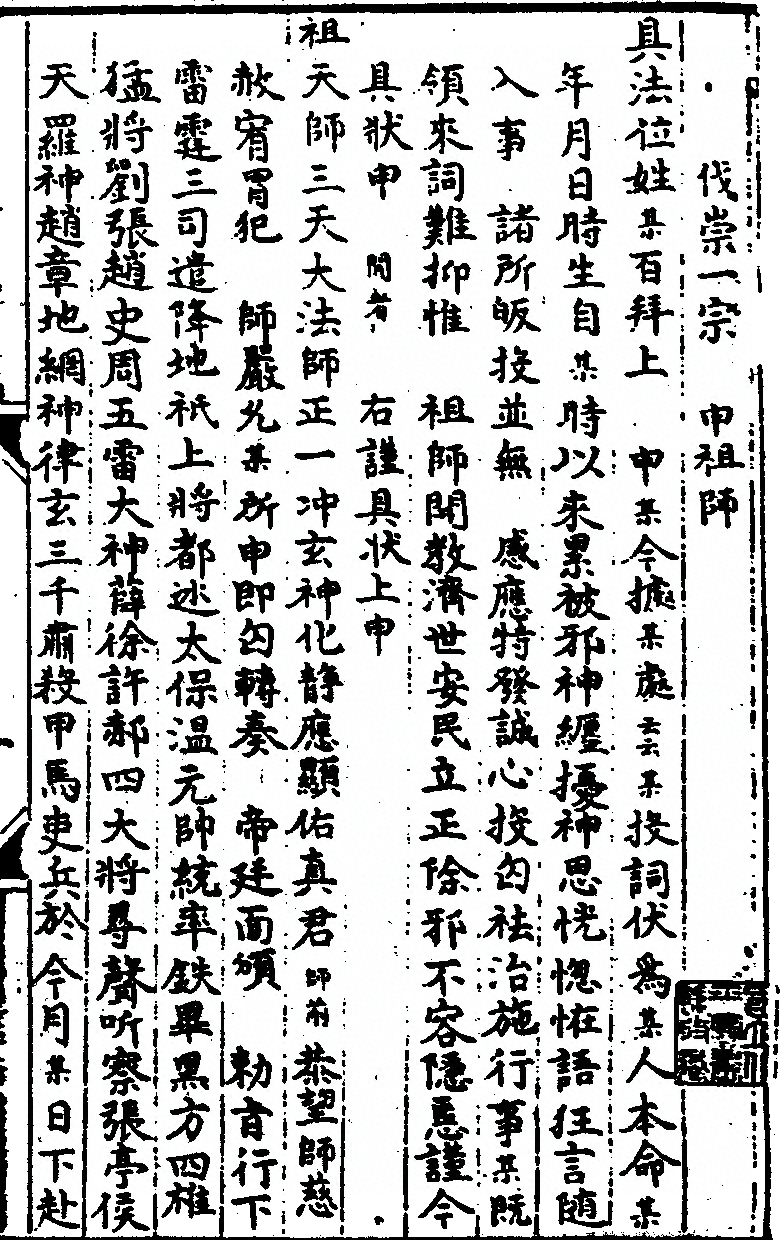 伐祟一宗　申祖師
具法位姓某百拜上　申某今據某處云云某投詞伏爲某人本命某
年月日時生自某時以來累被邪神纏擾神思恍惚怪語狂言随
入事　諸所皈投並無　感應特發誠心投匃袪治施行事某既
領來詞難抑惟　祖師開教濟世安民立正除邪不容隱慝謹今
具狀申　聞者　右謹具状上申
祖天師三天大法師正一冲玄神化静應顯佑真君師前恭望師慈
赦宥冐犯　師嚴允某所申即匃轉奏　帝廷面頒　勑旨行下
雷霆三司遣降地祇上將都巡太保温元帥統率鉄畢黑方四椎
猛將劉張趙史周五雷大神薛徐許郝四大將尋聲听察張亭侯
天羅神趙章地網神律玄三千肅殺甲馬吏兵於今月某日下赴